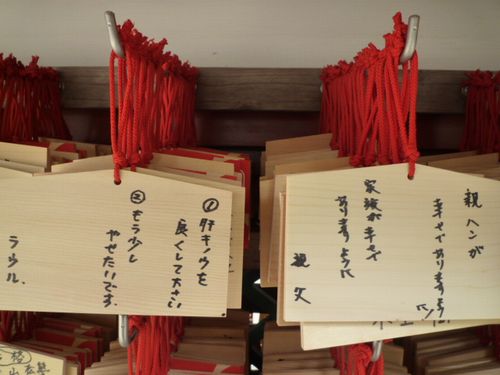 ① 肝キノウを
良くして下さい
② もう少し
やせたいです。
ラウル.
親ヘンが
幸せでありますように
家族が幸せで
ありますように